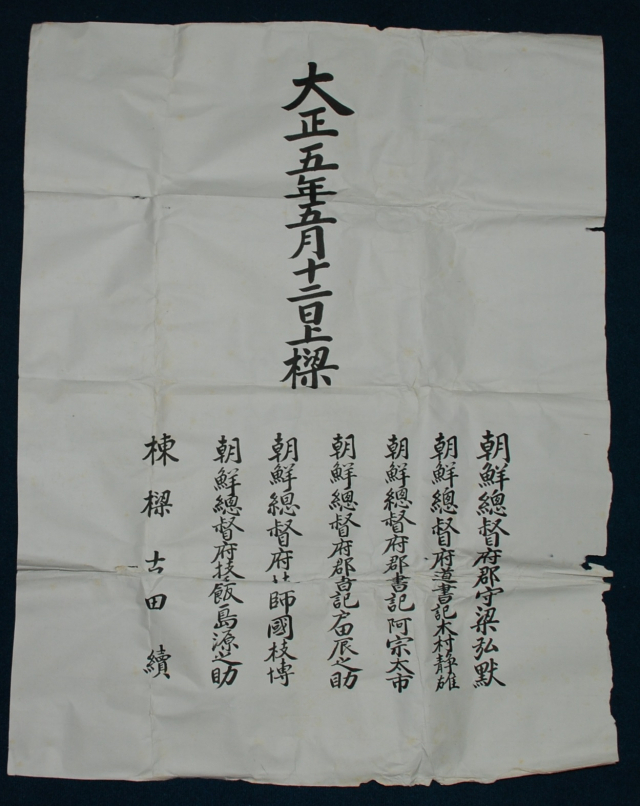 大正五年五月十二日上樑
朝鮮總督府郡守梁弘默
朝鮮總督府道書記木村靜雄
朝鮮總督府郡書記阿宗太市
朝鮮總督府郡書記戶田辰之助
朝鮮總督府技師國枝博
朝鮮總督府技飯島源之助
棟樑古田續